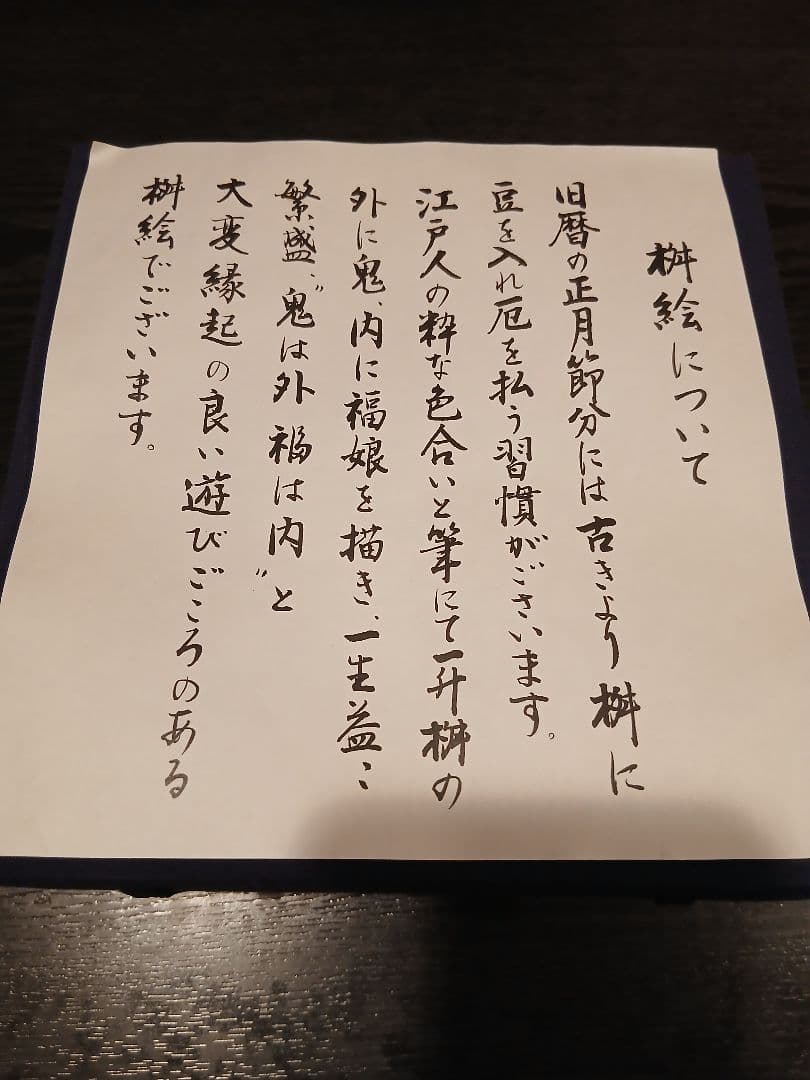 桝絵について
旧暦の正月節分には古きより桝に
豆を入れ厄を払う習慣がございます。
江戸人の粋な色合いと筆にて一升桝の
外に鬼、内に福娘を描き、一生益〻
繁盛、〝鬼は外 福は内〟と
大変縁起の良い遊びごころのある
桝絵でございます。